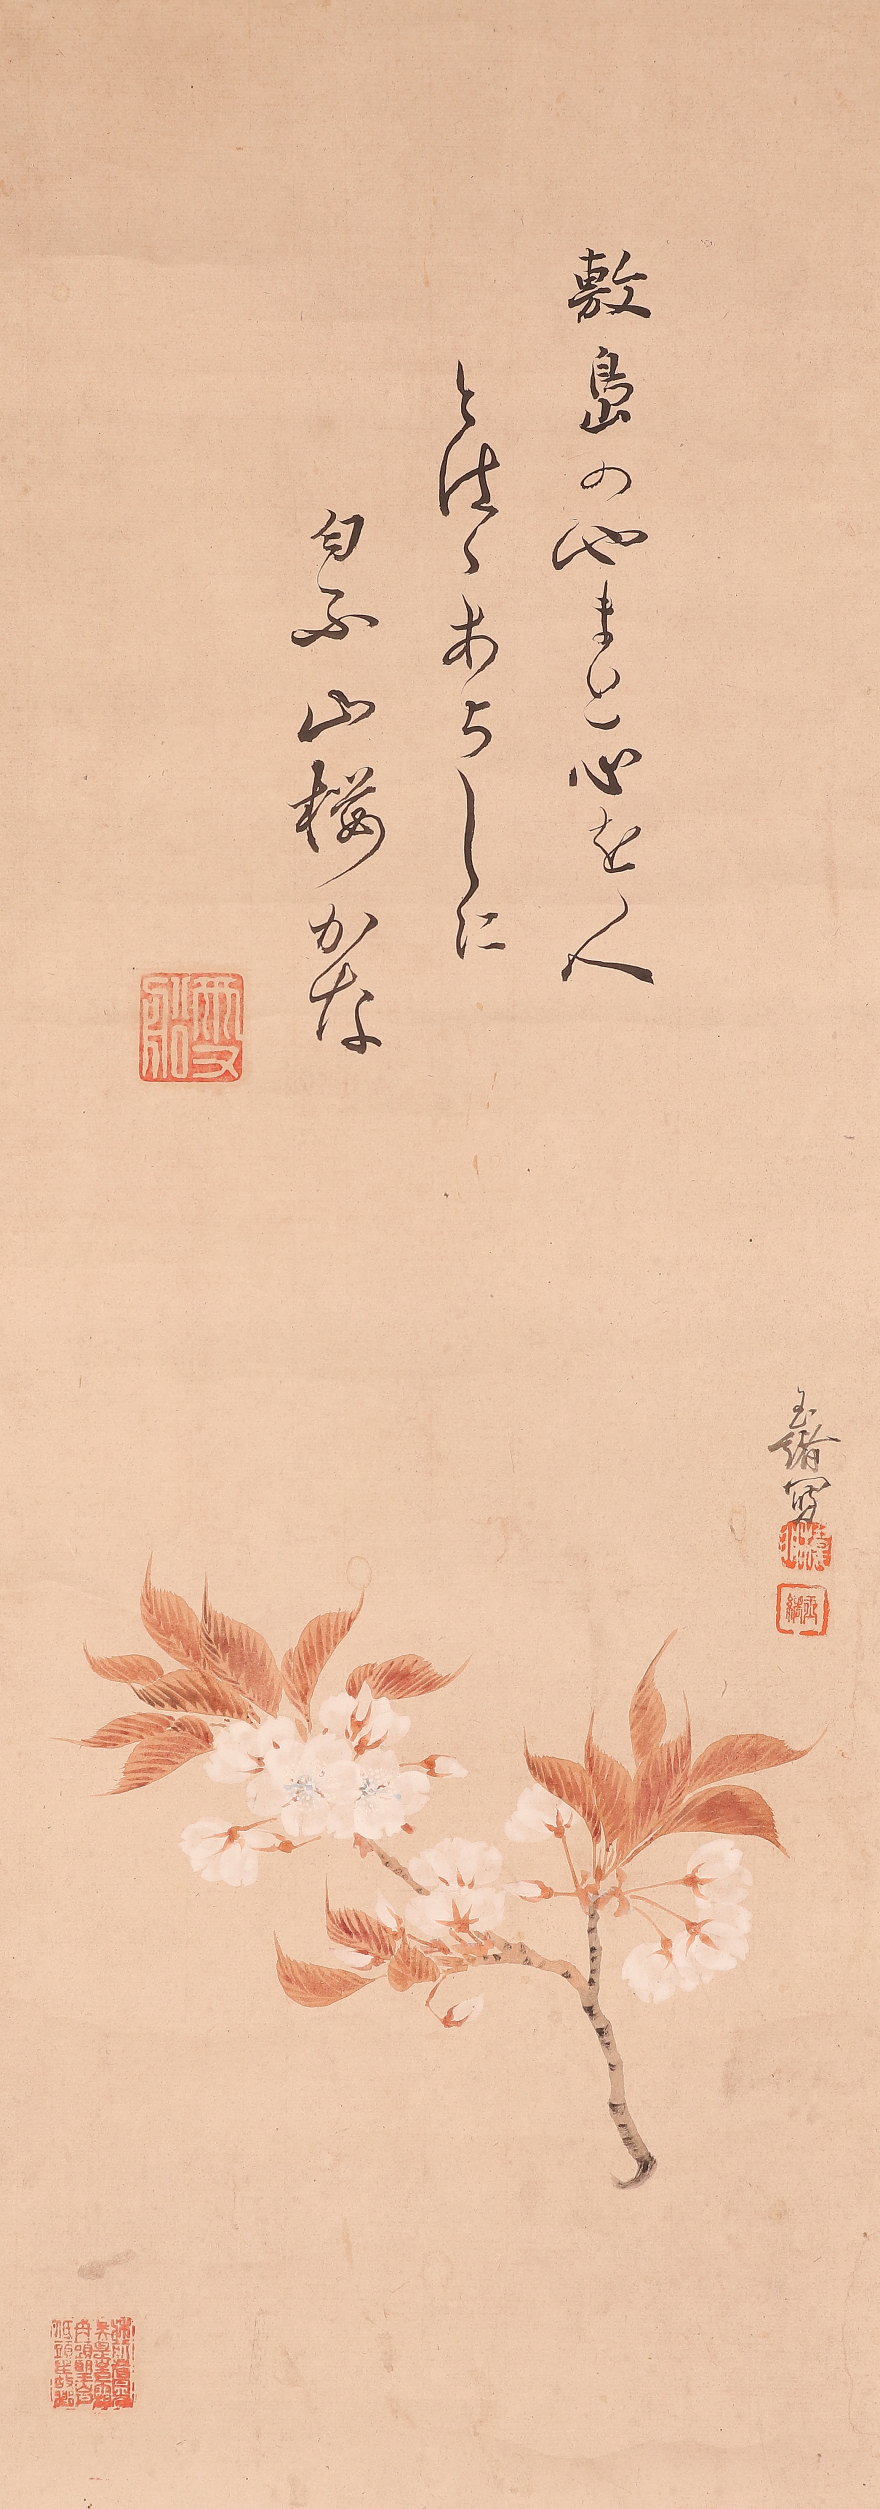 敷島のやまと心を人
とはゝあらしに
匂ふ山桜かな
玉 寫